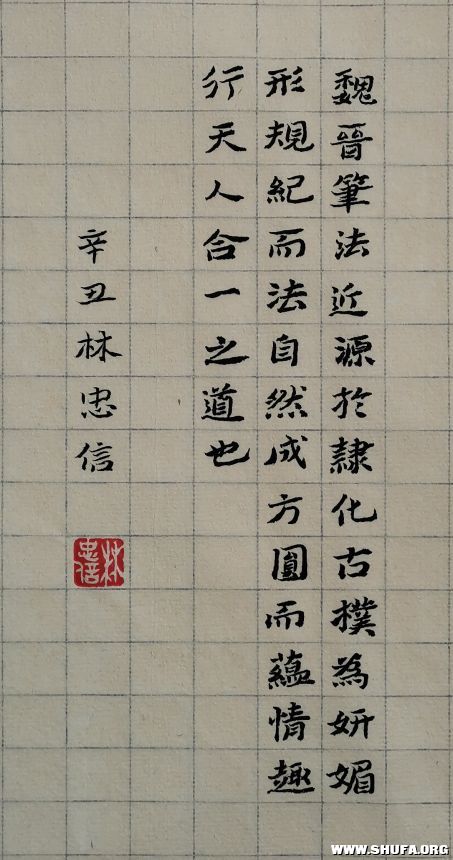 魏晉筆法近源於隸化古樸為妍媚
形規紀而法自然成方圓而蘊情趣
行天人合一之道也
辛丑林忠信
林忠信
WWW.SHUFA.ORG